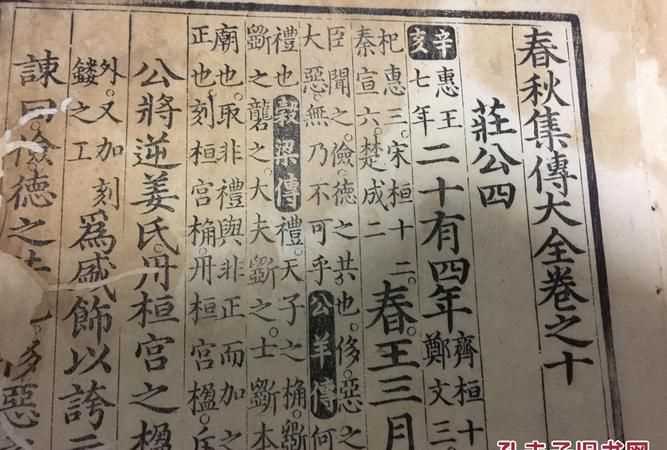 春秋集傳大全卷之十
莊公四
辛亥 惠王七年 二十有四年 齊桓十
鄭文三
杞惠三。宋桓十二。
秦宣六。楚成二。
春。王三月
臣聞之。儉。德之共也。侈。惡之
大惡。無乃不可乎 公羊傳 何
禮也 穀梁傳 禮。天子之桷。斵
斵之礱之。大夫斵之。士斵本
廟也。取非禮與非正而加之
正也。刻桓宮桷。丹桓宮楹。
公將逆姜氏。丹桓宮之楹
外。又加刻
鏤之工
爲盛飾以誇
諫曰。儉德之 侈惡
孔夫子旧书网